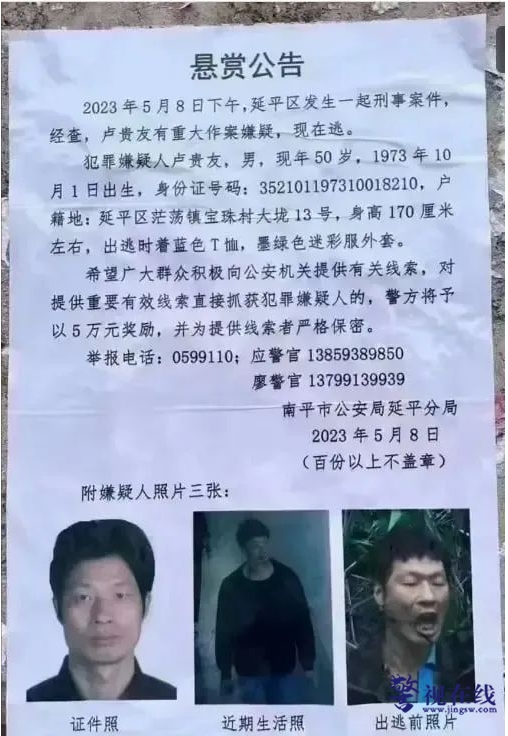 悬赏公告
2023年5月8日下午，延平区发生一起刑事案件，
经查，卢贵友有重大作案嫌疑，现在逃。
犯罪嫌疑人卢贵友，男，现年50岁，1973年10
月1日出生，身份证号码：352101197310018210，户
籍地：延平区茫荡镇宝珠村大垅13号，身高170厘米
左右，出逃时着蓝色T恤，墨绿色迷彩服外套。
希望广大群众积极向公安机关提供有关线索，对
提供重要有效线索直接抓获犯罪嫌疑人的，警方将予
以5万元奖励，并为提供线索者严格保密。
举报电话：0599110；应警官 13859389850
廖警官 13799139939
南平市公安局延平分局
2023年5月8日
（百份以上不盖章）
附嫌疑人照片三张：
证件照 近期生活照 出逃前照片
警视在线
www.jingsw.com